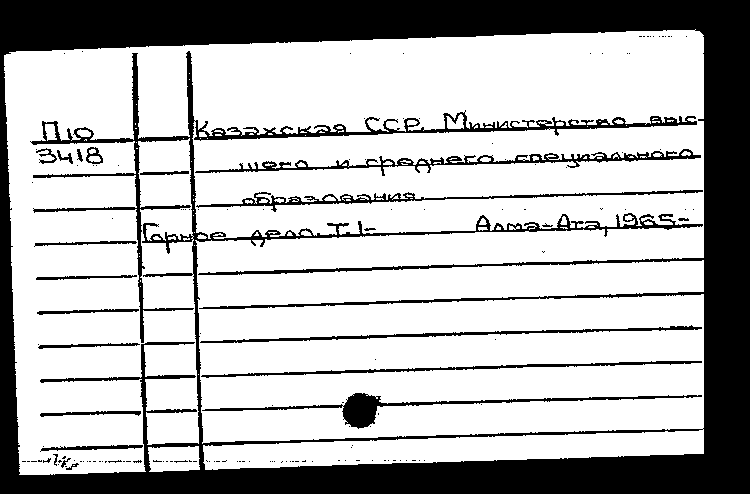 П10 Казахская ССР. Министерство выс-
3418 шего и среднего специального
образования.
Горное дело. Т. 1- Алма-Ата, 1965-